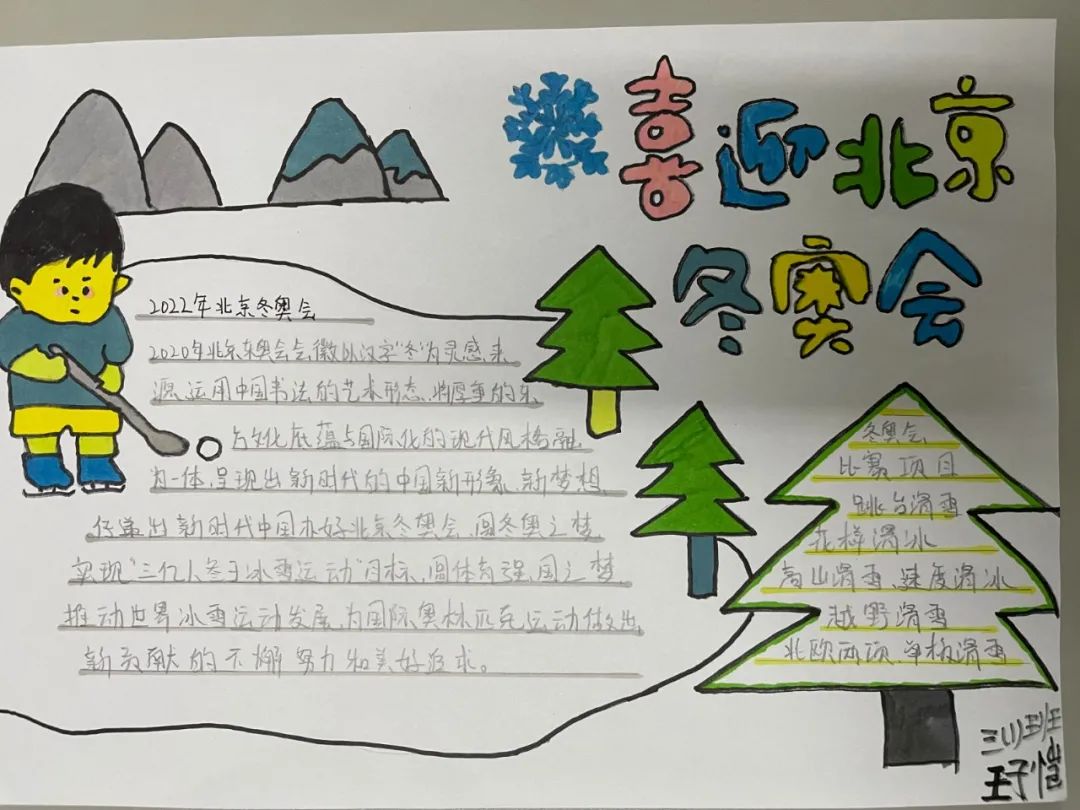 喜迎北京
冬奥会
2022年北京冬奥会
2020年北京东奥会会徽以汉字"冬"为灵感来
源、运用中国书法的艺术形态、将厚重的东
方文化底蕴与国际化的现代风格融
为一体,呈现出新时代的中国新形象、新梦想
传递出新时代中国办好北京冬奥会、圆冬奥之梦
实现"三亿人冬于冰雪运动"目标,圆体育强国之梦
推动世界冰雪运动发展、为国际奥林匹克运动做出
新贡献的不懈努力和美好追求。
冬奥会
比赛项目
跳台滑雪
花样滑冰
高山滑雪、速度滑冰
越野滑雪
北欧两项、单板滑雪
三(1)班
王子恺